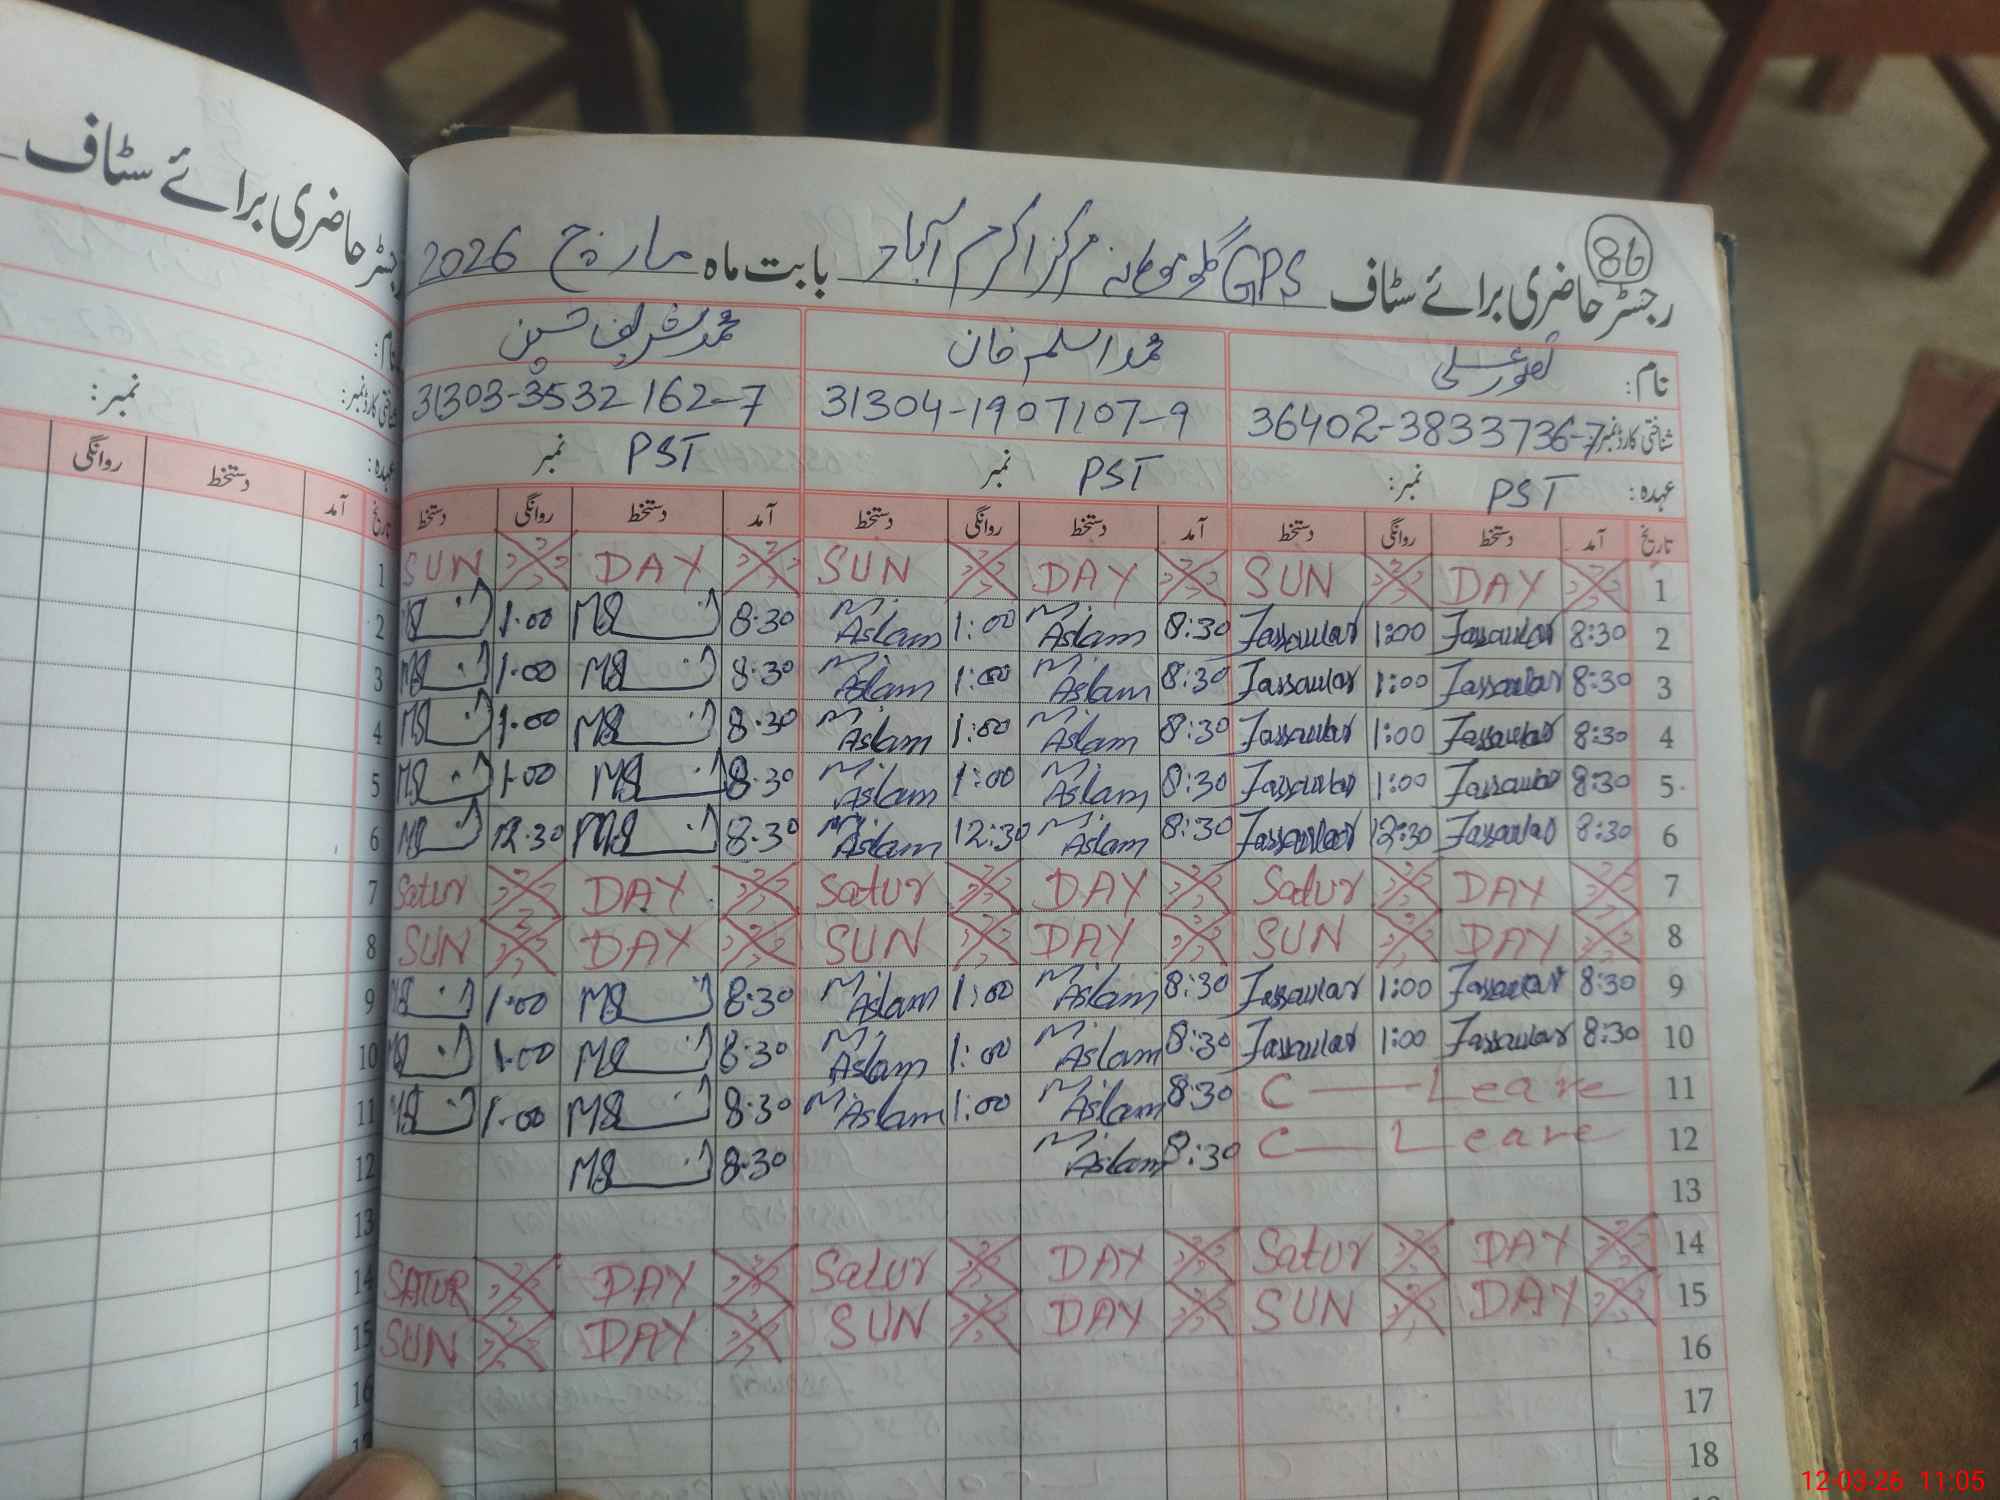 86
رجسٹر حاضری برائے سٹاف GPS مرکز اکرم آباد بابت ماہ مارچ 2026
نام: محمد اسلم خان محمد شریف حسین
شناختی کارڈ نمبر: 36402-3833736-7 31304-1907107-9 31303-3532162-7
عہدہ: PST نمبر: PST نمبر PST نمبر
تاریخ آمد دستخط روانگی دستخط آمد دستخط روانگی دستخط آمد دستخط روانگی دستخط
1 DAY SUN DAY SUN DAY SUN
2 8:30 1:00 8:30 M. Aslam 1:00 M. Aslam 8.30 MS 1.00 MS
3 8:30 1:00 8:30 M. Aslam 1:00 M. Aslam 8.30 MS 1.00 MS
4 8:30 1:00 8:30 M. Aslam 1:00 M. Aslam 8.30 MS 1.00 MS
5 8:30 1:00 8:30 M. Aslam 1:00 M. Aslam 8.30 MS 1.00 MS
6 8:30 12:30 8:30 M. Aslam 12:30 M. Aslam 8.30 MS 12.30 MS
7 DAY Satur DAY Satur DAY Satur
8 DAY SUN DAY SUN DAY SUN
9 8:30 1:00 8:30 M. Aslam 1:00 M. Aslam 8.30 MS 1.00 MS
10 8:30 1:00 8:30 M. Aslam 1:00 M. Aslam 8.30 MS 1.00 MS
11 C — Leave 8:30 M. Aslam 1:00 M. Aslam 8.30 MS 1.00 MS
12 C — Leave 8:30 M. Aslam 8.30 MS
13
14 DAY Satur DAY Satur DAY SATUR
15 DAY SUN DAY SUN DAY SUN
16
17
18
رجسٹر حاضری برائے سٹاف
نام:
شناختی کارڈ نمبر:
عہدہ: نمبر:
تاریخ آمد دستخط روانگی
1
2
3
4
5
6
7
8
9
10
11
12
13
14
15
16
17
12-03-26 11:05